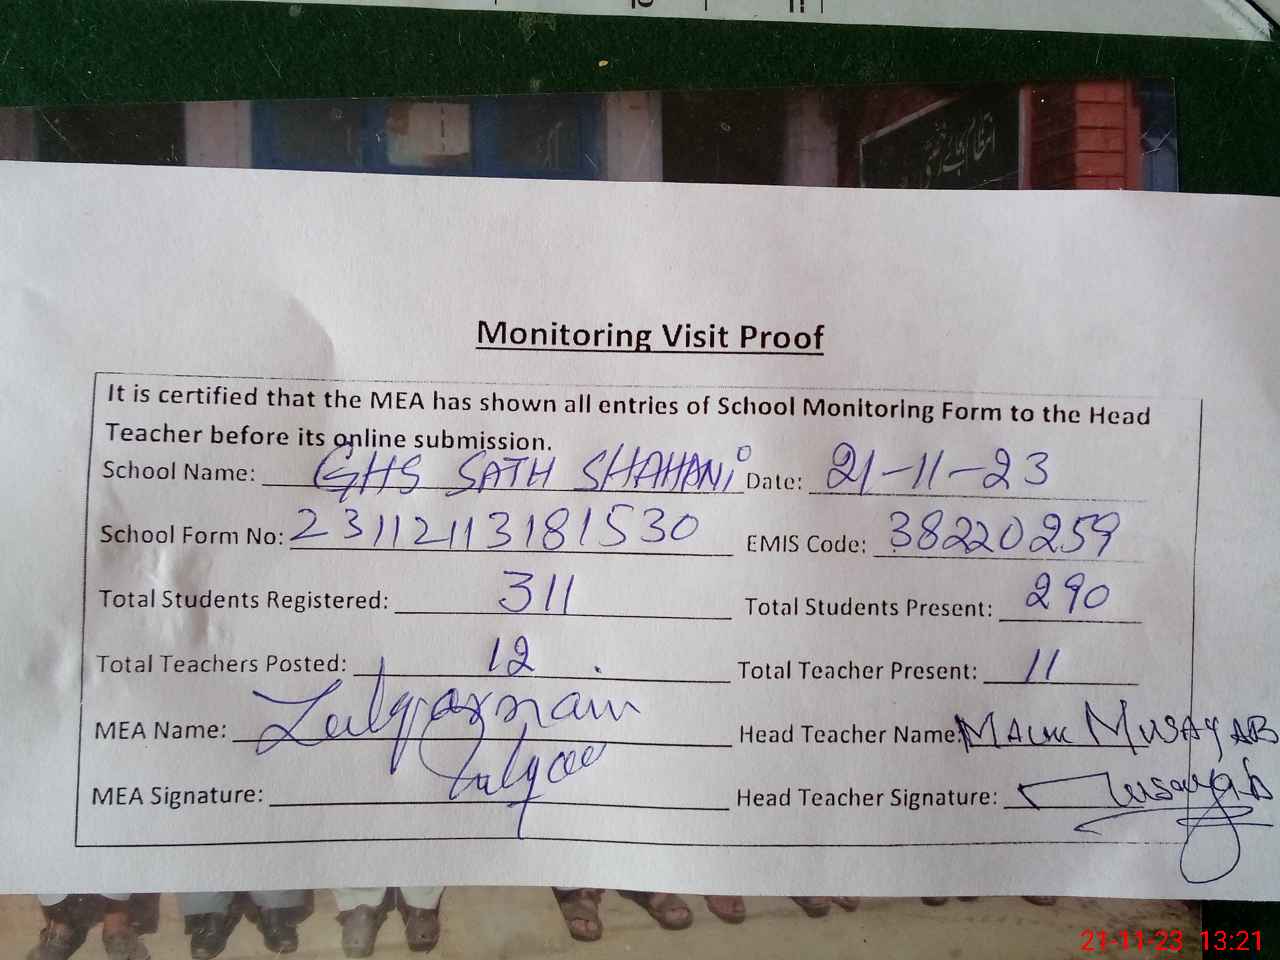 انتظام ہائے
Monitoring Visit Proof
It is certified that the MEA has shown all entries of School Monitoring Form to the Head
Teacher before its online submission.
School Name: GHS SATH SHAHANI Date: 21-11-23
School Form No: 23112113181530 EMIS Code: 38220259
Total Students Registered: 311 Total Students Present: 290
Total Teachers Posted: 12 Total Teacher Present: 11
MEA Name: Zulqarnain Head Teacher Name: MALIK MUSAYAB
MEA Signature: Head Teacher Signature: Musayab
21-11-23 13:21